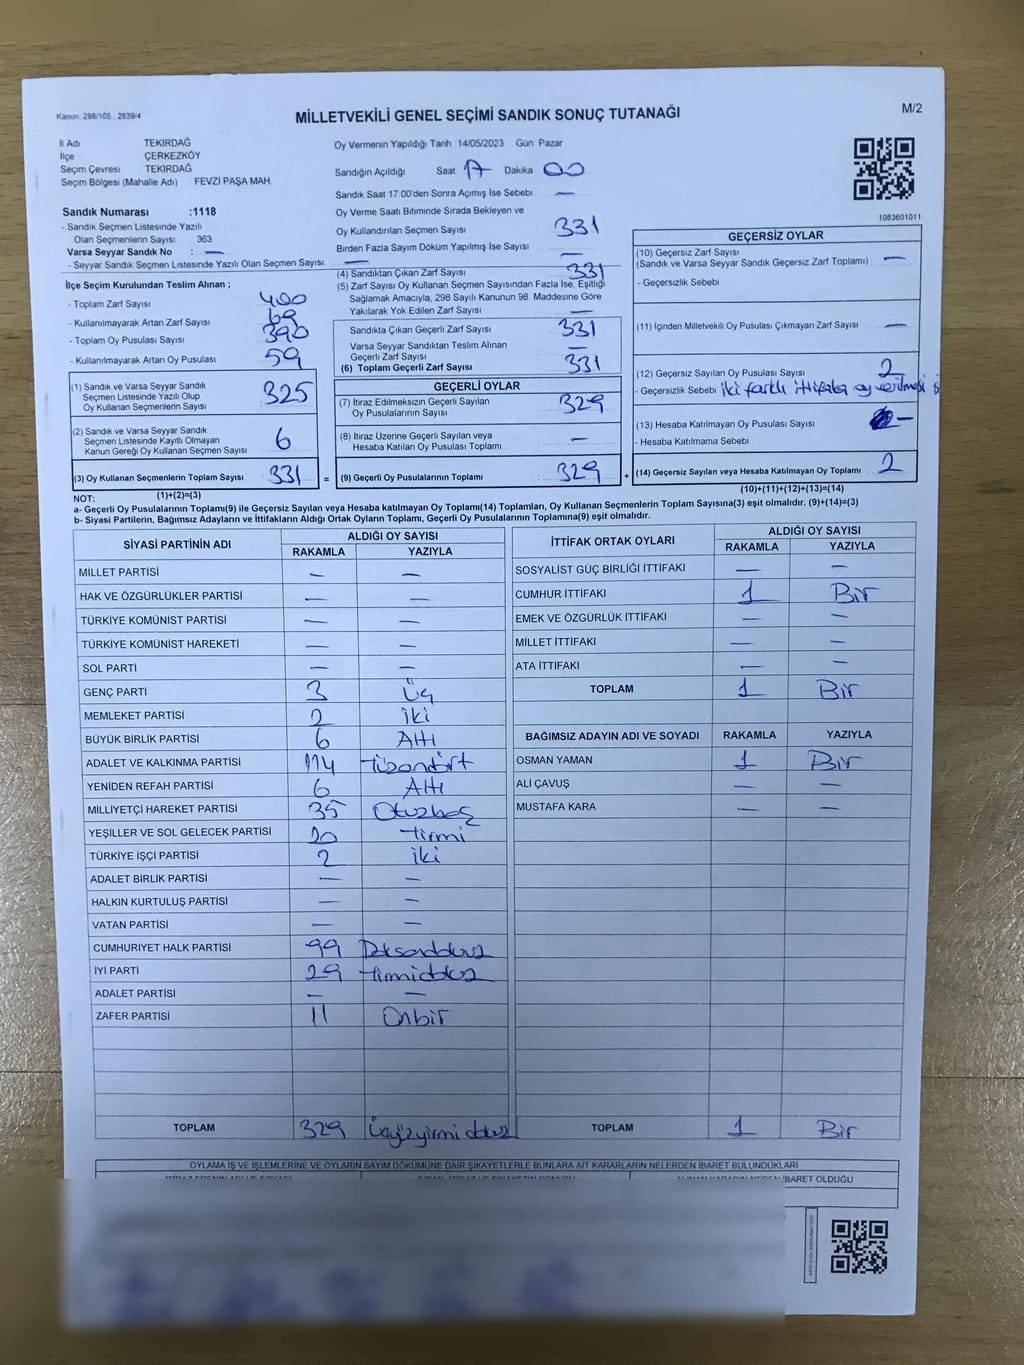 Kanun: 298/105 , 2839/4
MİLLETVEKİLİ GENEL SEÇİMİ SANDIK SONUÇ TUTANAĞI
M/2
İl Adı TEKİRDAĞ
İlçe ÇERKEZKÖY
Seçim Çevresi TEKİRDAĞ
Seçim Bölgesi (Mahalle Adı) FEVZİ PAŞA MAH
Oy Vermenin Yapıldığı Tarih 14/05/2023 Gün Pazar
Sandığın Açıldığı Saat 17 Dakika 00
Sandık Saat 17:00'den Sonra Açımış İse Sebebi —
Sandık Numarası :1118
- Sandık Seçmen Listesinde Yazılı
Olan Seçmenlerin Sayısı 363
Varsa Seyyar Sandık No : —
- Seyyar Sandık Seçmen Listesinde Yazılı Olan Seçmen Sayısı: —
Oy Verme Saati Bitiminde Sırada Bekleyen ve
Oy Kullandırılan Seçmen Sayısı 331
Birden Fazla Sayım Döküm Yapılmış İse Sayısı —
1083601011
İlçe Seçim Kurulundan Teslim Alınan ;
- Toplam Zarf Sayısı 400
- Kullanılmayarak Artan Zarf Sayısı 69
- Toplam Oy Pusulası Sayısı 390
- Kullanılmayarak Artan Oy Pusulası 59
(1) Sandık ve Varsa Seyyar Sandık
Seçmen Listesinde Yazılı Olup
Oy Kullanan Seçmenlerin Sayısı 325
(2) Sandık ve Varsa Seyyar Sandık
Seçmen Listesinde Kayıtlı Olmayan
Kanun Gereği Oy Kullanan Seçmen Sayısı 6
(3) Oy Kullanan Seçmenlerin Toplam Sayısı 331
(1)+(2)=(3)
(4) Sandıktan Çıkan Zarf Sayısı 331
(5) Zarf Sayısı Oy Kullanan Seçmen Sayısından Fazla İse, Eşitliği
Sağlamak Amacıyla, 298 Sayılı Kanunun 98. Maddesine Göre
Yakılarak Yok Edilen Zarf Sayısı —
Sandıkta Çıkan Geçerli Zarf Sayısı 331
Varsa Seyyar Sandıktan Teslim Alınan
Geçerli Zarf Sayısı —
(6) Toplam Geçerli Zarf Sayısı 331
GEÇERLİ OYLAR
(7) İtiraz Edilmeksizin Geçerli Sayılan
Oy Pusulalarının Sayısı 329
(8) İtiraz Üzerine Geçerli Sayılan veya
Hesaba Katılan Oy Pusulası Toplamı —
= (9) Geçerli Oy Pusulalarının Toplamı 329 +
GEÇERSİZ OYLAR
(10) Geçersiz Zarf Sayısı
(Sandık ve Varsa Seyyar Sandık Geçersiz Zarf Toplamı) —
- Geçersizlik Sebebi
(11) İçinden Milletvekili Oy Pusulası Çıkmayan Zarf Sayısı —
(12) Geçersiz Sayılan Oy Pusulası Sayısı 2
- Geçersizlik Sebebi iki farklı ittifaka oy verilmesi
(13) Hesaba Katılmayan Oy Pusulası Sayısı —
- Hesaba Katılmama Sebebi
(14) Geçersiz Sayılan veya Hesaba Katılmayan Oy Toplamı 2
(10)+(11)+(12)+(13)=(14)
NOT:
a- Geçerli Oy Pusulalarının Toplamı(9) ile Geçersiz Sayılan veya Hesaba katılmayan Oy Toplamı(14) Toplamları, Oy Kullanan Seçmenlerin Toplam Sayısına(3) eşit olmalıdır. (9)+(14)=(3)
b- Siyasi Partilerin, Bağımsız Adayların ve İttifakların Aldığı Ortak Oyların Toplamı, Geçerli Oy Pusulalarının Toplamına(9) eşit olmalıdır.
SİYASİ PARTİNİN ADI ALDIĞI OY SAYISI
RAKAMLA YAZIYLA
MİLLET PARTİSİ — —
HAK VE ÖZGÜRLÜKLER PARTİSİ — —
TÜRKİYE KOMÜNİST PARTİSİ — —
TÜRKİYE KOMÜNİST HAREKETİ — —
SOL PARTİ — —
GENÇ PARTİ 3 Üç
MEMLEKET PARTİSİ 2 iki
BÜYÜK BİRLİK PARTİSİ 6 Altı
ADALET VE KALKINMA PARTİSİ 114 Yüzondört
YENİDEN REFAH PARTİSİ 6 Altı
MİLLİYETÇİ HAREKET PARTİSİ 35 Otuzbeş
YEŞİLLER VE SOL GELECEK PARTİSİ 20 Yirmi
TÜRKİYE İŞÇİ PARTİSİ 2 iki
ADALET BİRLİK PARTİSİ — —
HALKIN KURTULUŞ PARTİSİ — —
VATAN PARTİSİ — —
CUMHURİYET HALK PARTİSİ 99 Doksandokuz
İYİ PARTİ 29 Yirmidokuz
ADALET PARTİSİ — —
ZAFER PARTİSİ 11 Onbir
TOPLAM 329 Üçyüzyirmi dokuz
İTTİFAK ORTAK OYLARI ALDIĞI OY SAYISI
RAKAMLA YAZIYLA
SOSYALİST GÜÇ BİRLİĞİ İTTİFAKI — —
CUMHUR İTTİFAKI 1 Bir
EMEK VE ÖZGÜRLÜK İTTİFAKI — —
MİLLET İTTİFAKI — —
ATA İTTİFAKI — —
TOPLAM 1 Bir
BAĞIMSIZ ADAYIN ADI VE SOYADI RAKAMLA YAZIYLA
OSMAN YAMAN 1 Bir
ALİ ÇAVUŞ — —
MUSTAFA KARA — —
TOPLAM 1 Bir
OYLAMA İŞ VE İŞLEMLERİNE VE OYLARIN SAYIM DÖKÜMÜNE DAİR ŞİKAYETLERLE BUNLARA AİT KARARLARIN NELERDEN İBARET BULUNDUKLARI
İBARET OLDUĞU